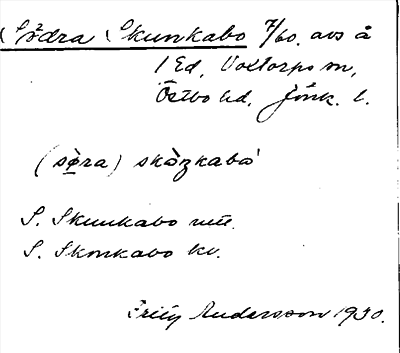 Södra Skunkabo 7/60. avs å
1 Ed, Voxtorps sn,
Östbo hd, Jönk. l.
(sø̀ra) skàŋkabo
S. Skunkabo
S. Skonkabo kv.
Fritz Andersson 1930.